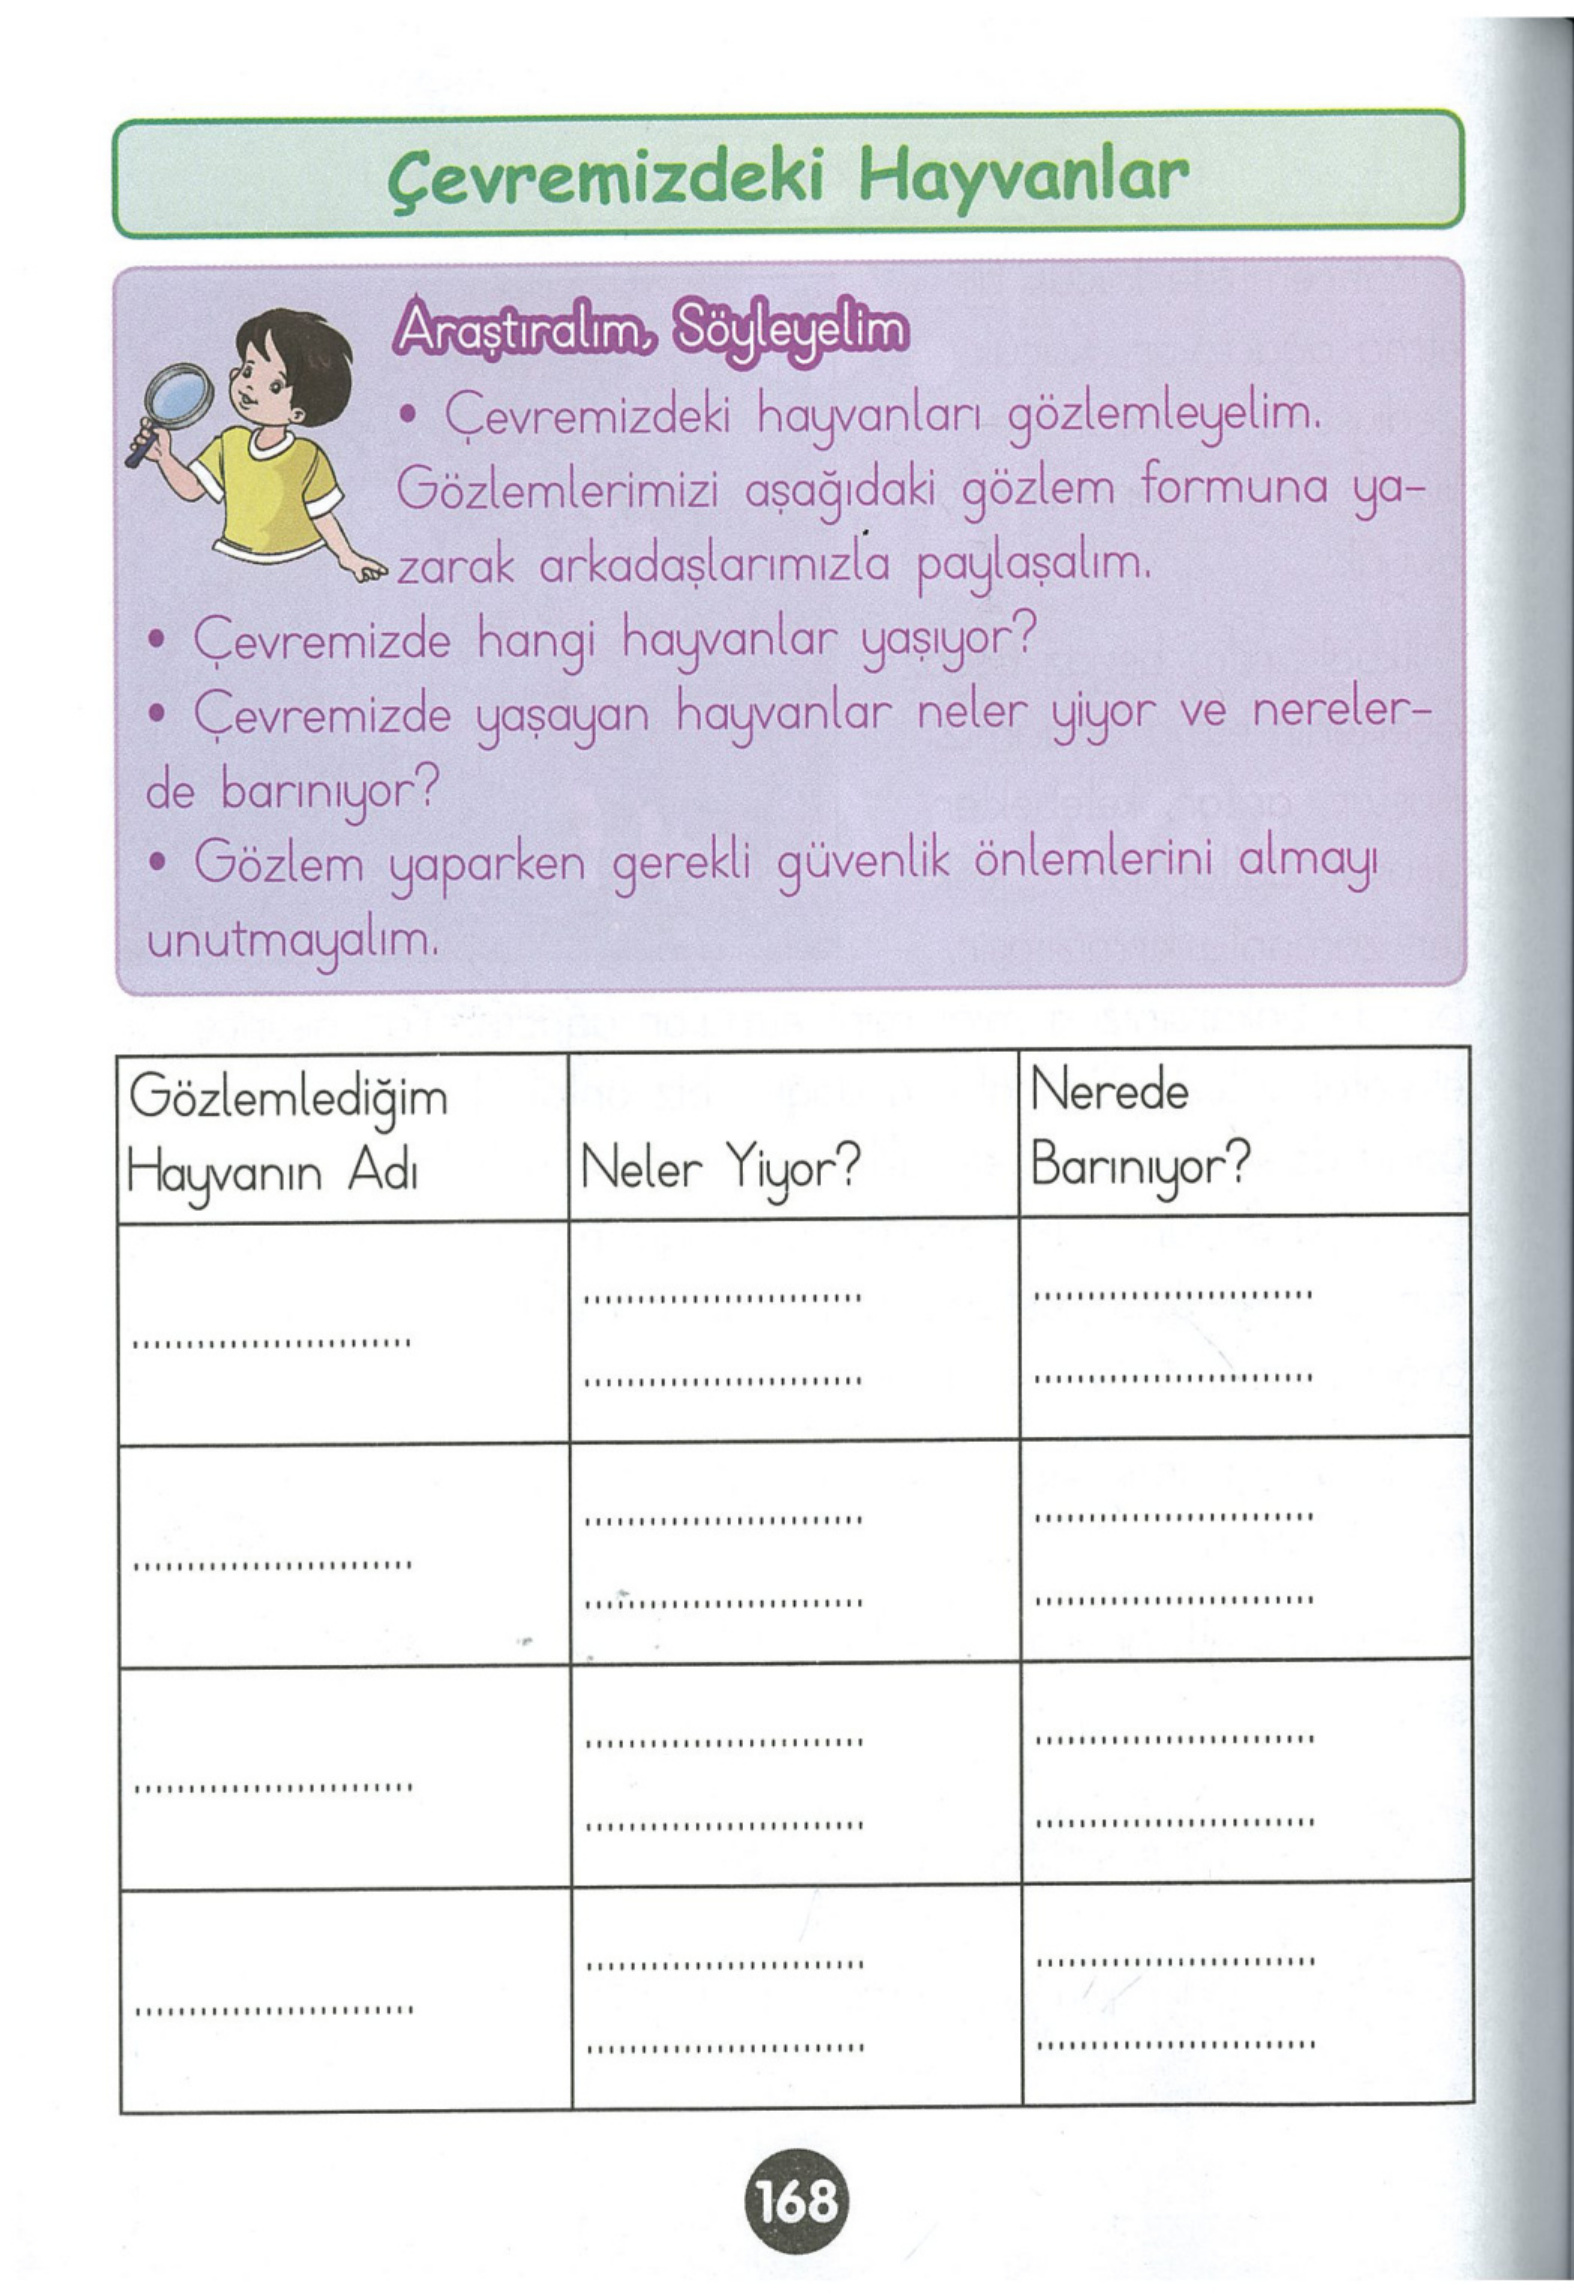 Çevremizdeki Hayvanlar
Araştıralım, Söyleyelim
• Çevremizdeki hayvanları gözlemleyelim.
Gözlemlerimizi aşağıdaki gözlem formuna ya-
zarak arkadaşlarımızla paylaşalım.
• Çevremizde hangi hayvanlar yaşıyor?
• Çevremizde yaşayan hayvanlar neler yiyor ve nereler-
de barınıyor?
• Gözlem yaparken gerekli güvenlik önlemlerini almayı
unutmayalım.
Gözlemlediğim
Hayvanın Adı
Neler Yiyor?
Nerede
Barınıyor?
168